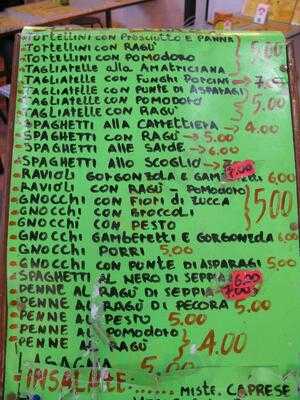 TORTELLINI CON PROSCIUTTO E PANNA
TORTELLINI CON RAGÙ } 5,00
TORTELLINI CON POMODORO
TAGLIATELLE ALLA AMATRICIANA
TAGLIATELLE CON FUNGHI PORCINI →
TAGLIATELLE CON PUNTE DI ASPARAGI
TAGLIATELLE CON POMODORO } 5.00
TAGLIATELLE CON RAGÙ
SPAGHETTI ALLA CARRETTIERA → 4.00
SPAGHETTI CON RAGÙ → 5.00
SPAGHETTI ALLE SARDE → 6.00
SPAGHETTI ALLO SCOGLIO → 7.00
RAVIOLI GORGONZOLA E GAMBERETTI 6,00
RAVIOLI CON RAGÙ - POMODORO
GNOCCHI CON FIORI DI ZUCCA
GNOCCHI CON BROCCOLI } 500
GNOCCHI CON PESTO
GNOCCHI GAMBERETTI E GORGONZOLA 6,00
GNOCCHI PORRI 5,00
GNOCCHI CON PUNTE DI ASPARAGI 5.00
SPAGHETTI AL NERO DI SEPPIA 6,00
PENNE AL RAGÙ DI SEPPIA → 7.00
PENNE AL RAGÙ DI PECORA 5.00
PENNE AL PESTO 5,00
PENNE AL POMODORO
PENNE AL RAGÙ } 4.00
LASAGNA 5.00
-INSALATE------ MISTE. CAPRESE